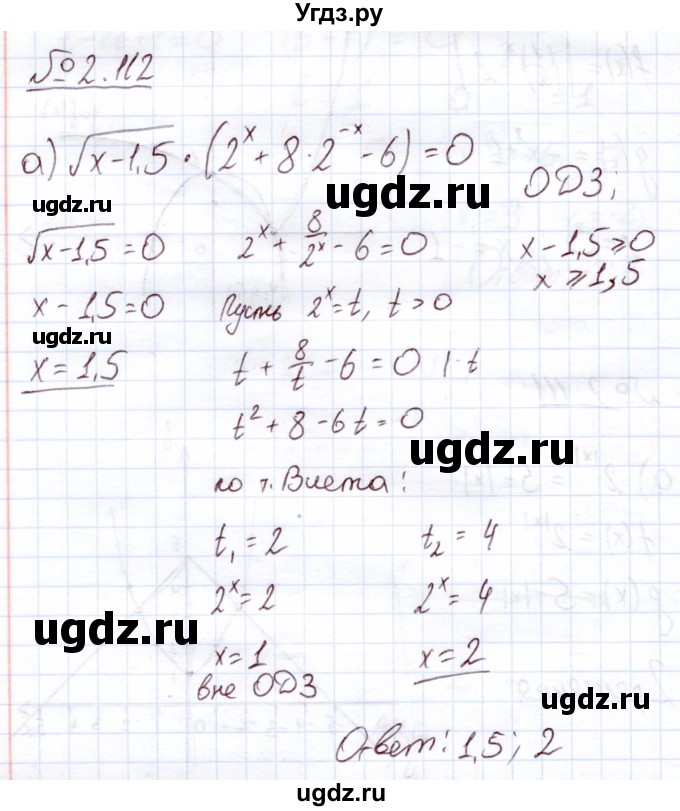 Угдз.ру
№ 2.112
а) √(x-1,5) · (2^x + 8·2^(-x) - 6) = 0
ugdz.ru ugdz.ru
ОДЗ;
√(x-1,5) = 0 2^x + 8/2^x - 6 = 0 x - 1,5 ≥ 0
x ≥ 1,5
x - 1,5 = 0 Пусть 2^x = t, t > 0
x = 1,5 t + 8/t - 6 = 0 | · t
t² + 8 - 6t = 0
ugdz.ru
по т. Виета:
t₁ = 2 t₂ = 4
2^x = 2 2^x = 4
ugdz.ru
x = 1 x = 2
вне ОДЗ
ugdz.ru
Ответ: 1,5; 2
ugdz.ru